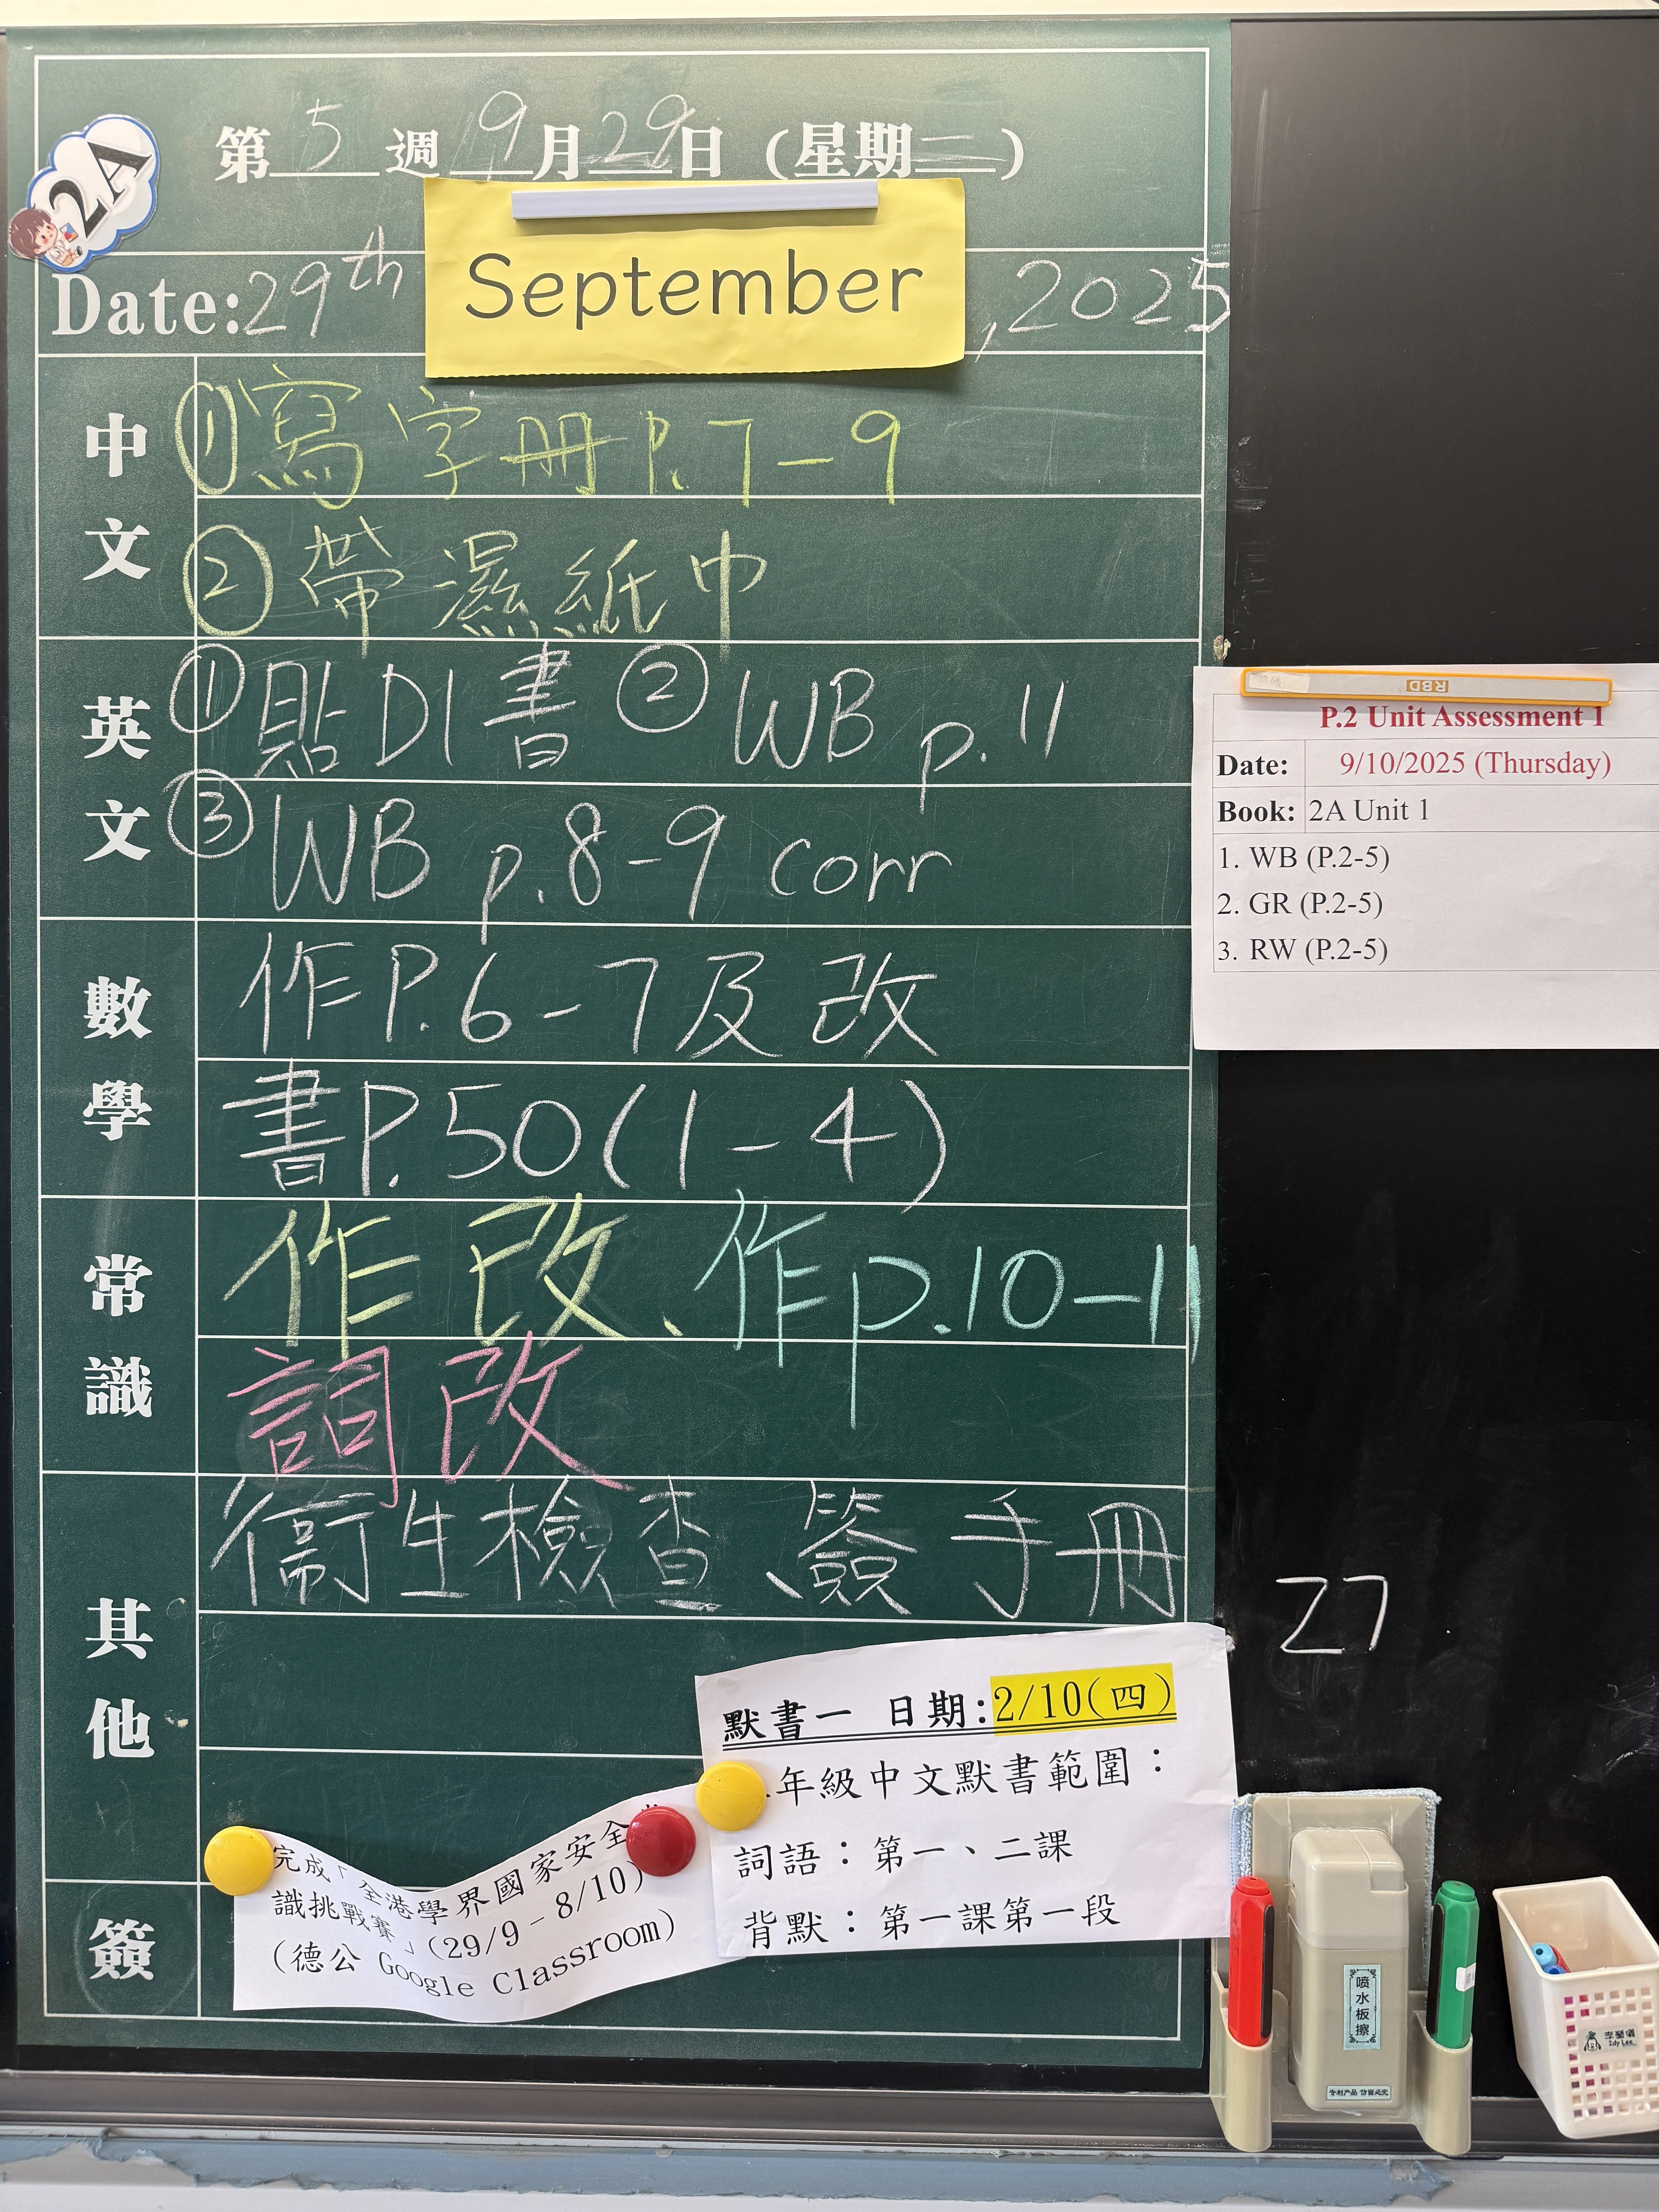 2A
第 5 週 9 月 29 日 (星期二)
Date: 29th September, 2025
中文
① 寫字冊 P. 7-9
② 帶濕紙巾
英文
① 貼 D1 書 ② WB p. 11
③ WB p. 8-9 corr
數學
作 P. 6-7 及改
書 P. 50 (1-4)
常識
作改、作 p. 10-11
詞改
其他
衞生檢查、簽手冊
簽
完成「全港學界國家安全
識挑戰賽」(29/9-8/10)
(德公 Google Classroom)
默書一 日期:2/10(四)
年級中文默書範圍：
詞語：第一、二課
背默：第一課第一段
RBD
P.2 Unit Assessment 1
Date: 9/10/2025 (Thursday)
Book: 2A Unit 1
1. WB (P.2-5)
2. GR (P.2-5)
3. RW (P.2-5)
27
喷水板擦
专利产品 仿冒必究